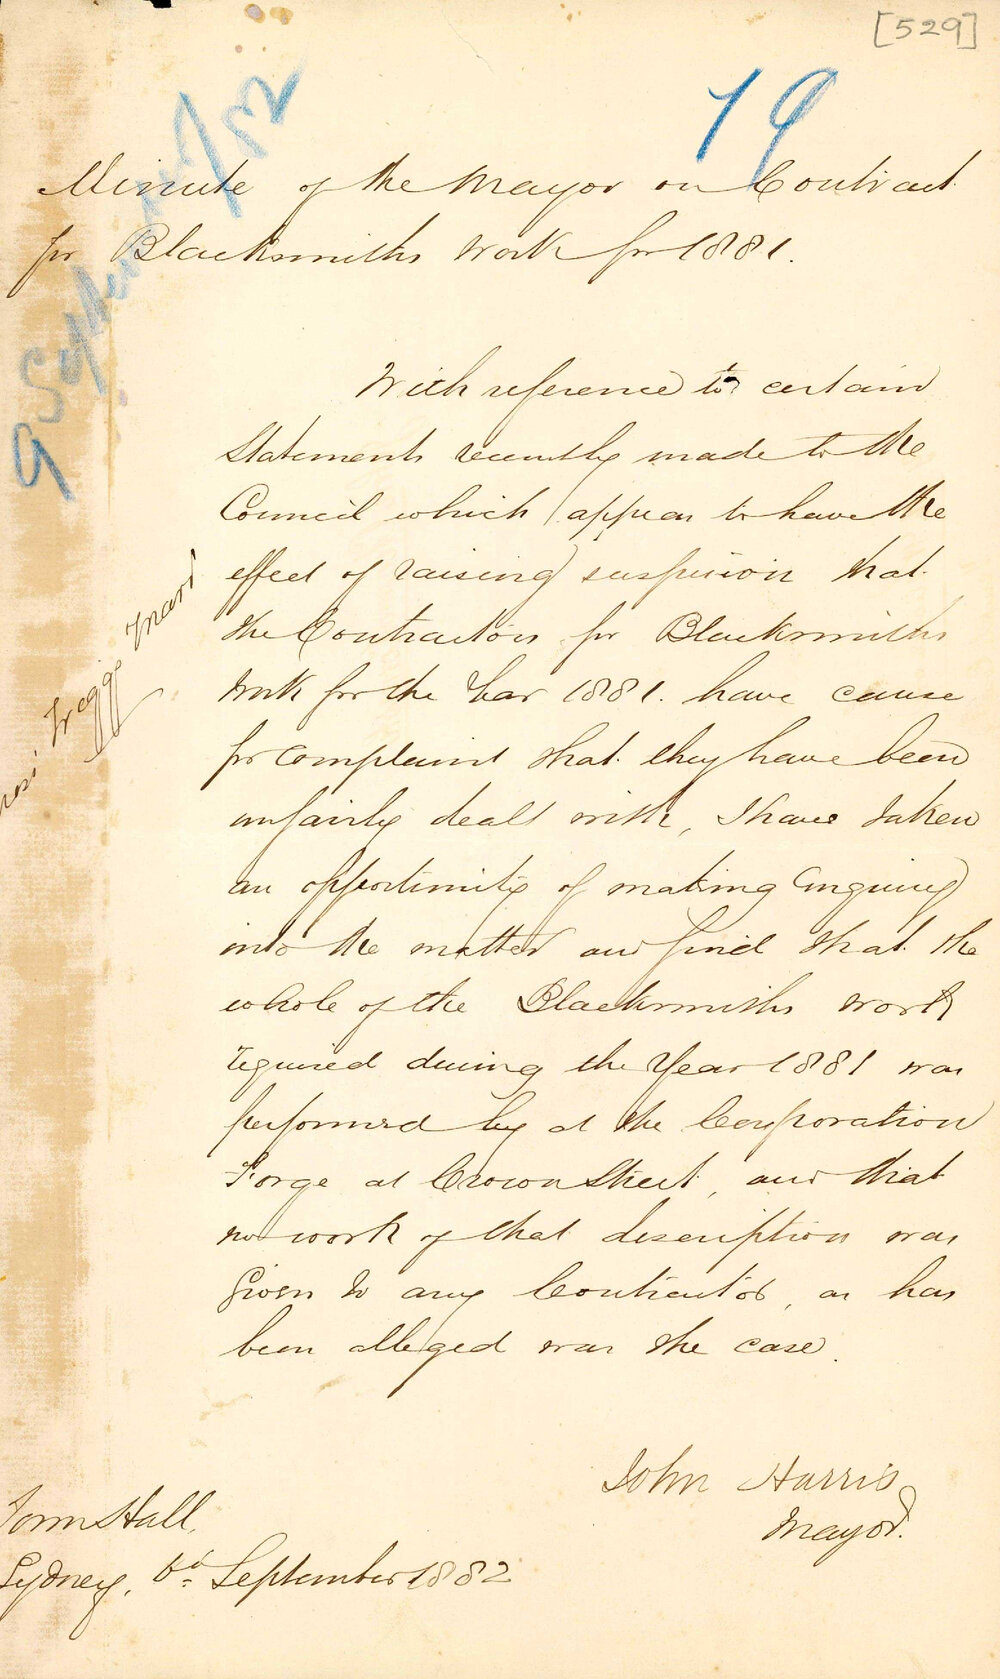 [529]
19
9 September /82
Minute of the Mayor on Contract
for Blacksmiths work for 1881.
With reference to certain
Statements recently made to the
Council which appear to have the
effect of raising suspicion that
the Contractors for Blacksmiths
work for the Year 1881. have cause
for complaint that they have been
unfairly dealt with, I have taken
an opportunity of making Enquiry
into the matter and find that the
whole of the Blacksmiths work
required during the Year 1881 was
performed by at the Corporation
Forge at Crown Street, and that
no work of that description was
given to any Contractor, as has
been alleged was the case.
John Harris
Mayor.
Town Hall,
Sydney, September 1882